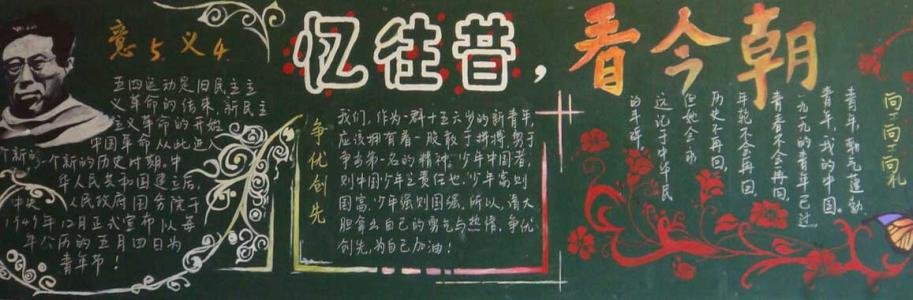 忆往昔，看今朝
意5.义4
五四运动是旧民主主
义革命的结束，新民主
主义革命的开始
中国革命从此进入
个新的历史时期。中
华人民共和国建立后，
中央人民政府国务院于
1949年12月正式宣布以每
年公历的五月四日为
青年节！
争优创先
我们，作为一群十五六岁的新青年
应该拥有着一股敢于拼搏，勇于
争当第一名的精神。少年中国者，
则中国少年之责任也，少年富则
国富，少年强则国强，所以，请大
胆拿出自己的勇气与热情，争优
创先，为自己加油！
向
青年，朝气蓬勃
青年，我的中国。
一九一九的青年已过
青春不会再回，
年轮不会再回，
历史不再回，
但她会永
这记于中华民
的丰碑